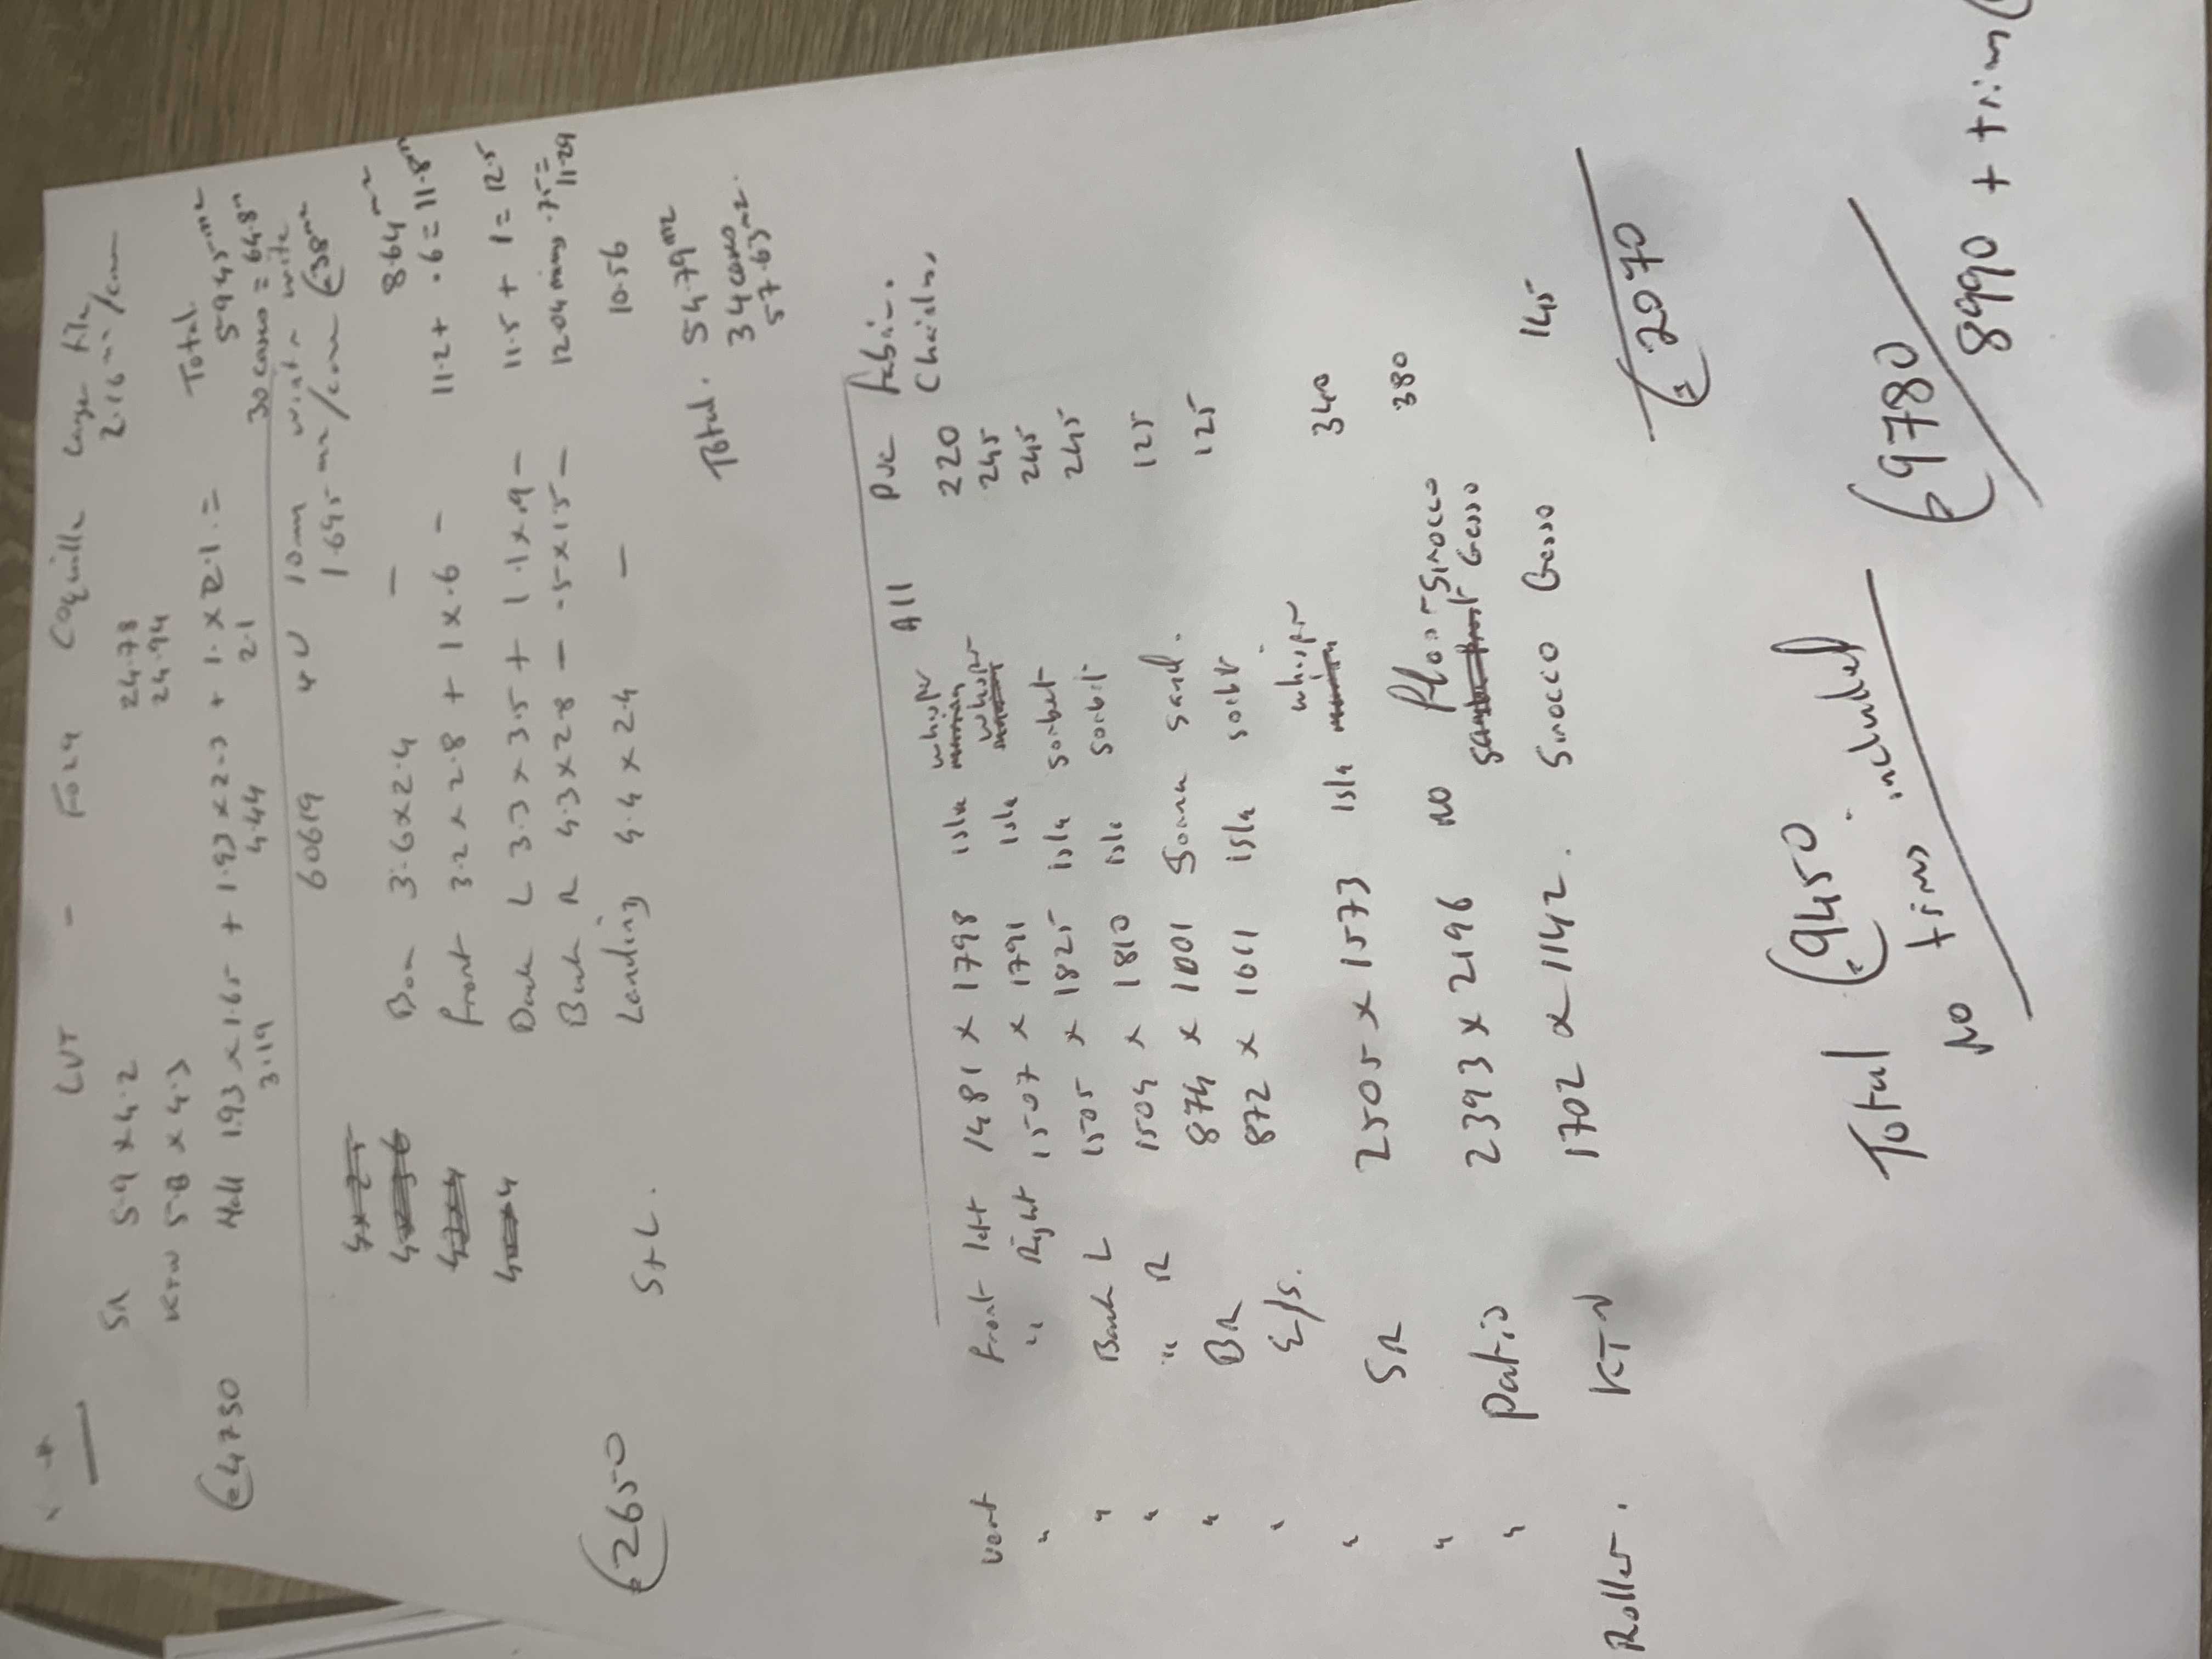 LVT - Foza Coquille Large tile
2.16 m²/carr
SR 5.9 x 4.2 24.78 Total
KTN 5.8 x 4.3 24.94 59.45 m²
£4750 Hall 1.93 x 1.65 + 1.93 x 2.3 + 1. x 2.1. =
3.19 4.44 2.1
30 carrs = 64.8m
60619 40 10mm
1.695 m²/carr £38m²
Box 3.6 x 2.4 - 8.64 m²
Front 3.2 x 2.8 + 1 x .6 - 11.2 + .6 = 11.8m
Back L 3.3 x 3.5 + 1.1 x .9 - 11.5 + 1 = 12.5
Back R 4.3 x 2.8 - .5 x 1.5 - 12.04 minus .75 =
11.29
Landing 4.4 x 2.4 - 10.56
£2650 S+L.
Total. 54.79m²
34 carrs
57.63m².
All PVC fabric.
Chains.
Vert Front left 1481 x 1798 isla whisper 220
" " Right 1507 x 1791 isla whisper 245
" Back L 1505 x 1825 isla sorbet 245
" " R 1504 x 1810 isla sorbet 245
" BR 874 x 1001 sand. 125
" E/S. 872 x 1011 isla sorbet 125
" SR 2505 x 1573 isla whisper 340
" Patio 2393 x 2196 no Floor Sirocco Gesso 380
Roller. KTN 1702 x 1142. Sirocco Gesso 145
£2070
Total £9450. £9780
No trims included 8990 + trim